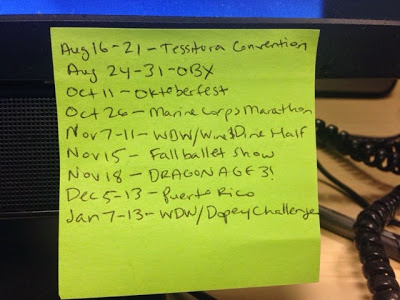 Aug 16-21 - Tessitura Convention
Aug 24-31 - OBX
Oct 11 - Oktoberfest
Oct 26 - Marine Corps Marathon
Nov 7-11 - WDW/Wine$Dine Half
Nov 15 - Fall ballet show
Nov 18 - DRAGON AGE 3!
Dec 5-13 - Puerto Rico
Jan 7-13 - WDW/Dopey Challenge